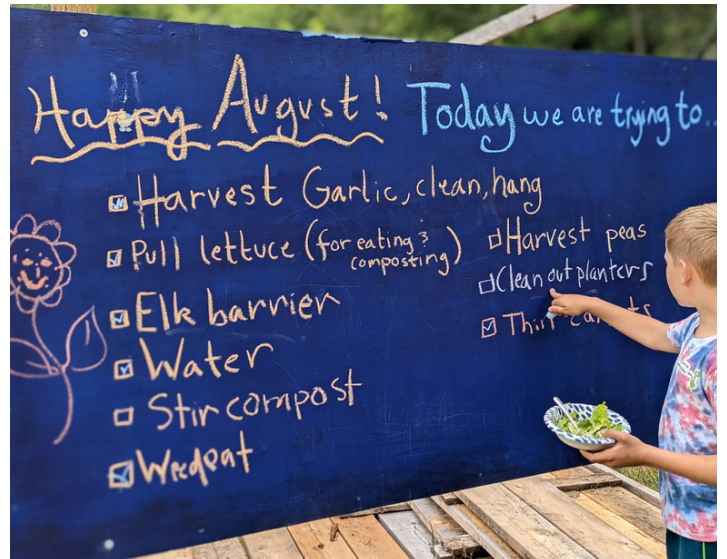 Happy August!
Today we are trying to...
Harvest Garlic, clean, hang
Pull lettuce (for eating &
composting)
Elk barrier
Water
Stir compost
Harvest peas
Clean out planters
Thin